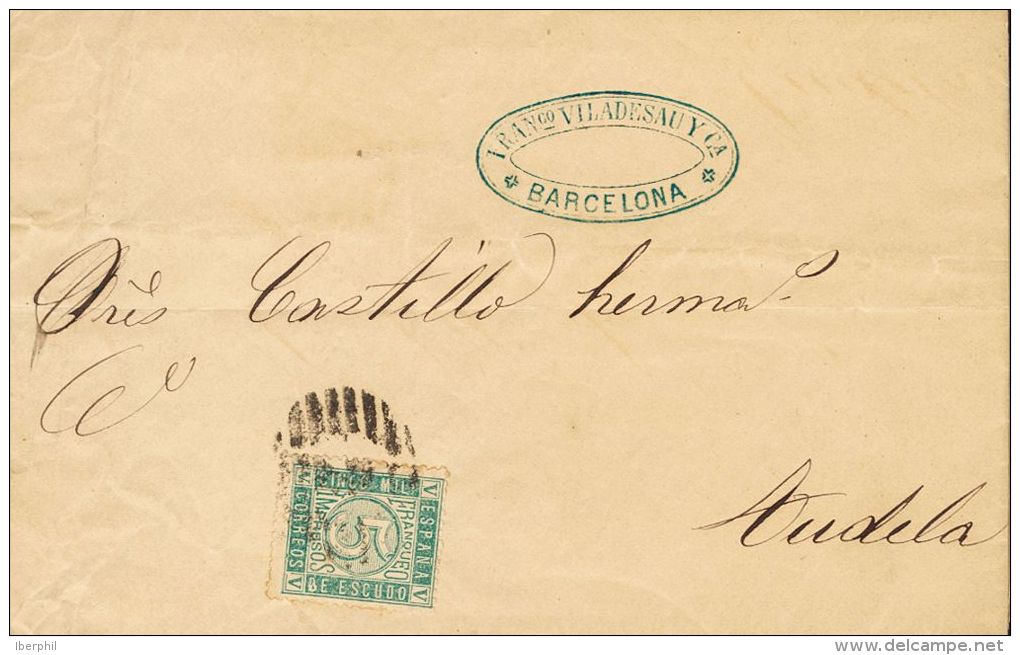 FRANCO VILADESAU Y CA
BARCELONA
Sres Castillo herms
Tudela
CINCO MIL
CORREOS
IMPRESOS
5
FRANQUEO
ESPAÑA
DE ESCUDO
Iberphil
www.delcampe.net